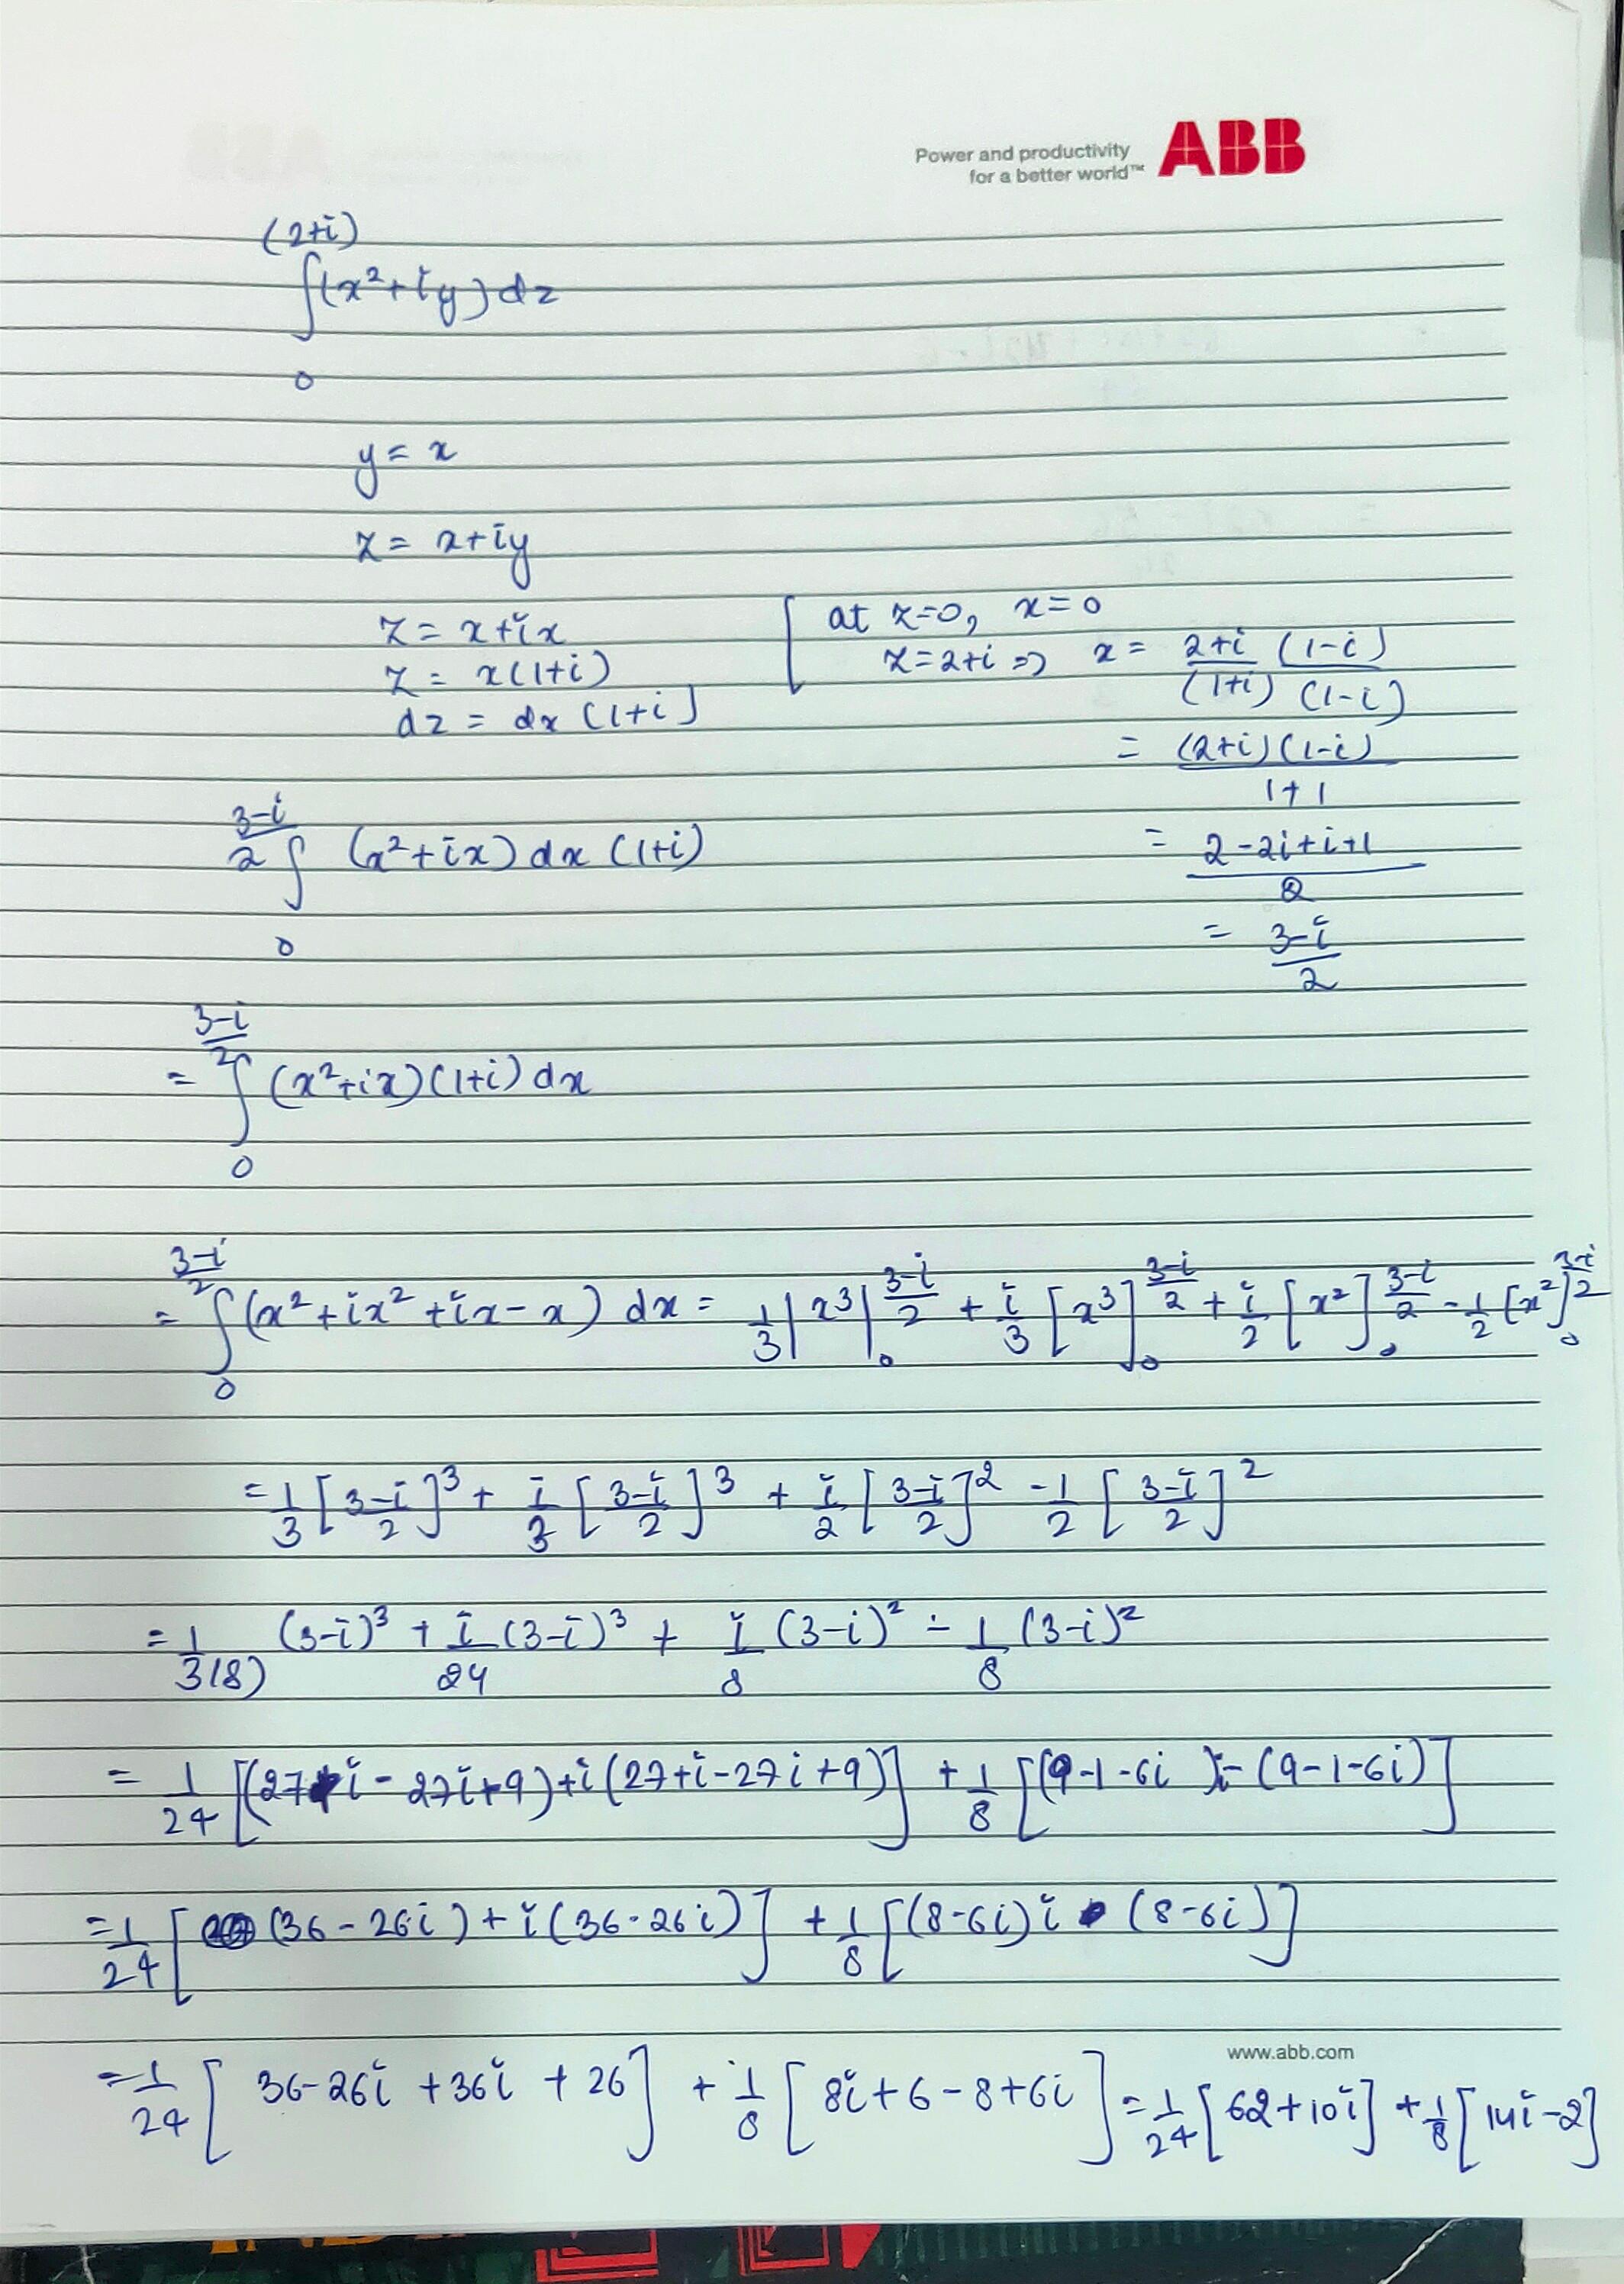 Power and productivity
for a better world™ ABB
(2+i)
∫(x²+iy)dz
0
y = x
z = x+iy
z = x+ix
z = x(1+i)
dz = dx (1+i)
[ at z=0, x=0
z=2+i ⇒ x = (2+i)/(1+i) (1-i)/(1-i)
= (2+i)(1-i) / 1+1
= 2-2i+i+1 / 2
= 3-i / 2
∫₀^{(3-i)/2} (x²+ix) dx (1+i)
= ∫₀^{(3-i)/2} (x²+ix)(1+i) dx
= ∫₀^{(3-i)/2} (x²+ix²+ix-x) dx = 1/3 |x³|₀^{(3-i)/2} + i/3 [x³]₀^{(3-i)/2} + i/2 [x²]₀^{(3-i)/2} - 1/2 [x²]₀^{(3-i)/2}
= 1/3 [3-i/2]³ + i/3 [3-i/2]³ + i/2 [3-i/2]² - 1/2 [3-i/2]²
= 1/3(8) (3-i)³ + i/24 (3-i)³ + i/8 (3-i)² - 1/8 (3-i)²
= 1/24 [(27+i-27i+9)+i(27+i-27i+9)] + 1/8 [(9-1-6i)i-(9-1-6i)]
= 1/24 [(36-26i)+i(36-26i)] + 1/8 [(8-6i)i - (8-6i)]
= 1/24 [36-26i+36i+26] + 1/8 [8i+6-8+6i] = 1/24 [62+10i] + 1/8 [14i-2]
www.abb.com